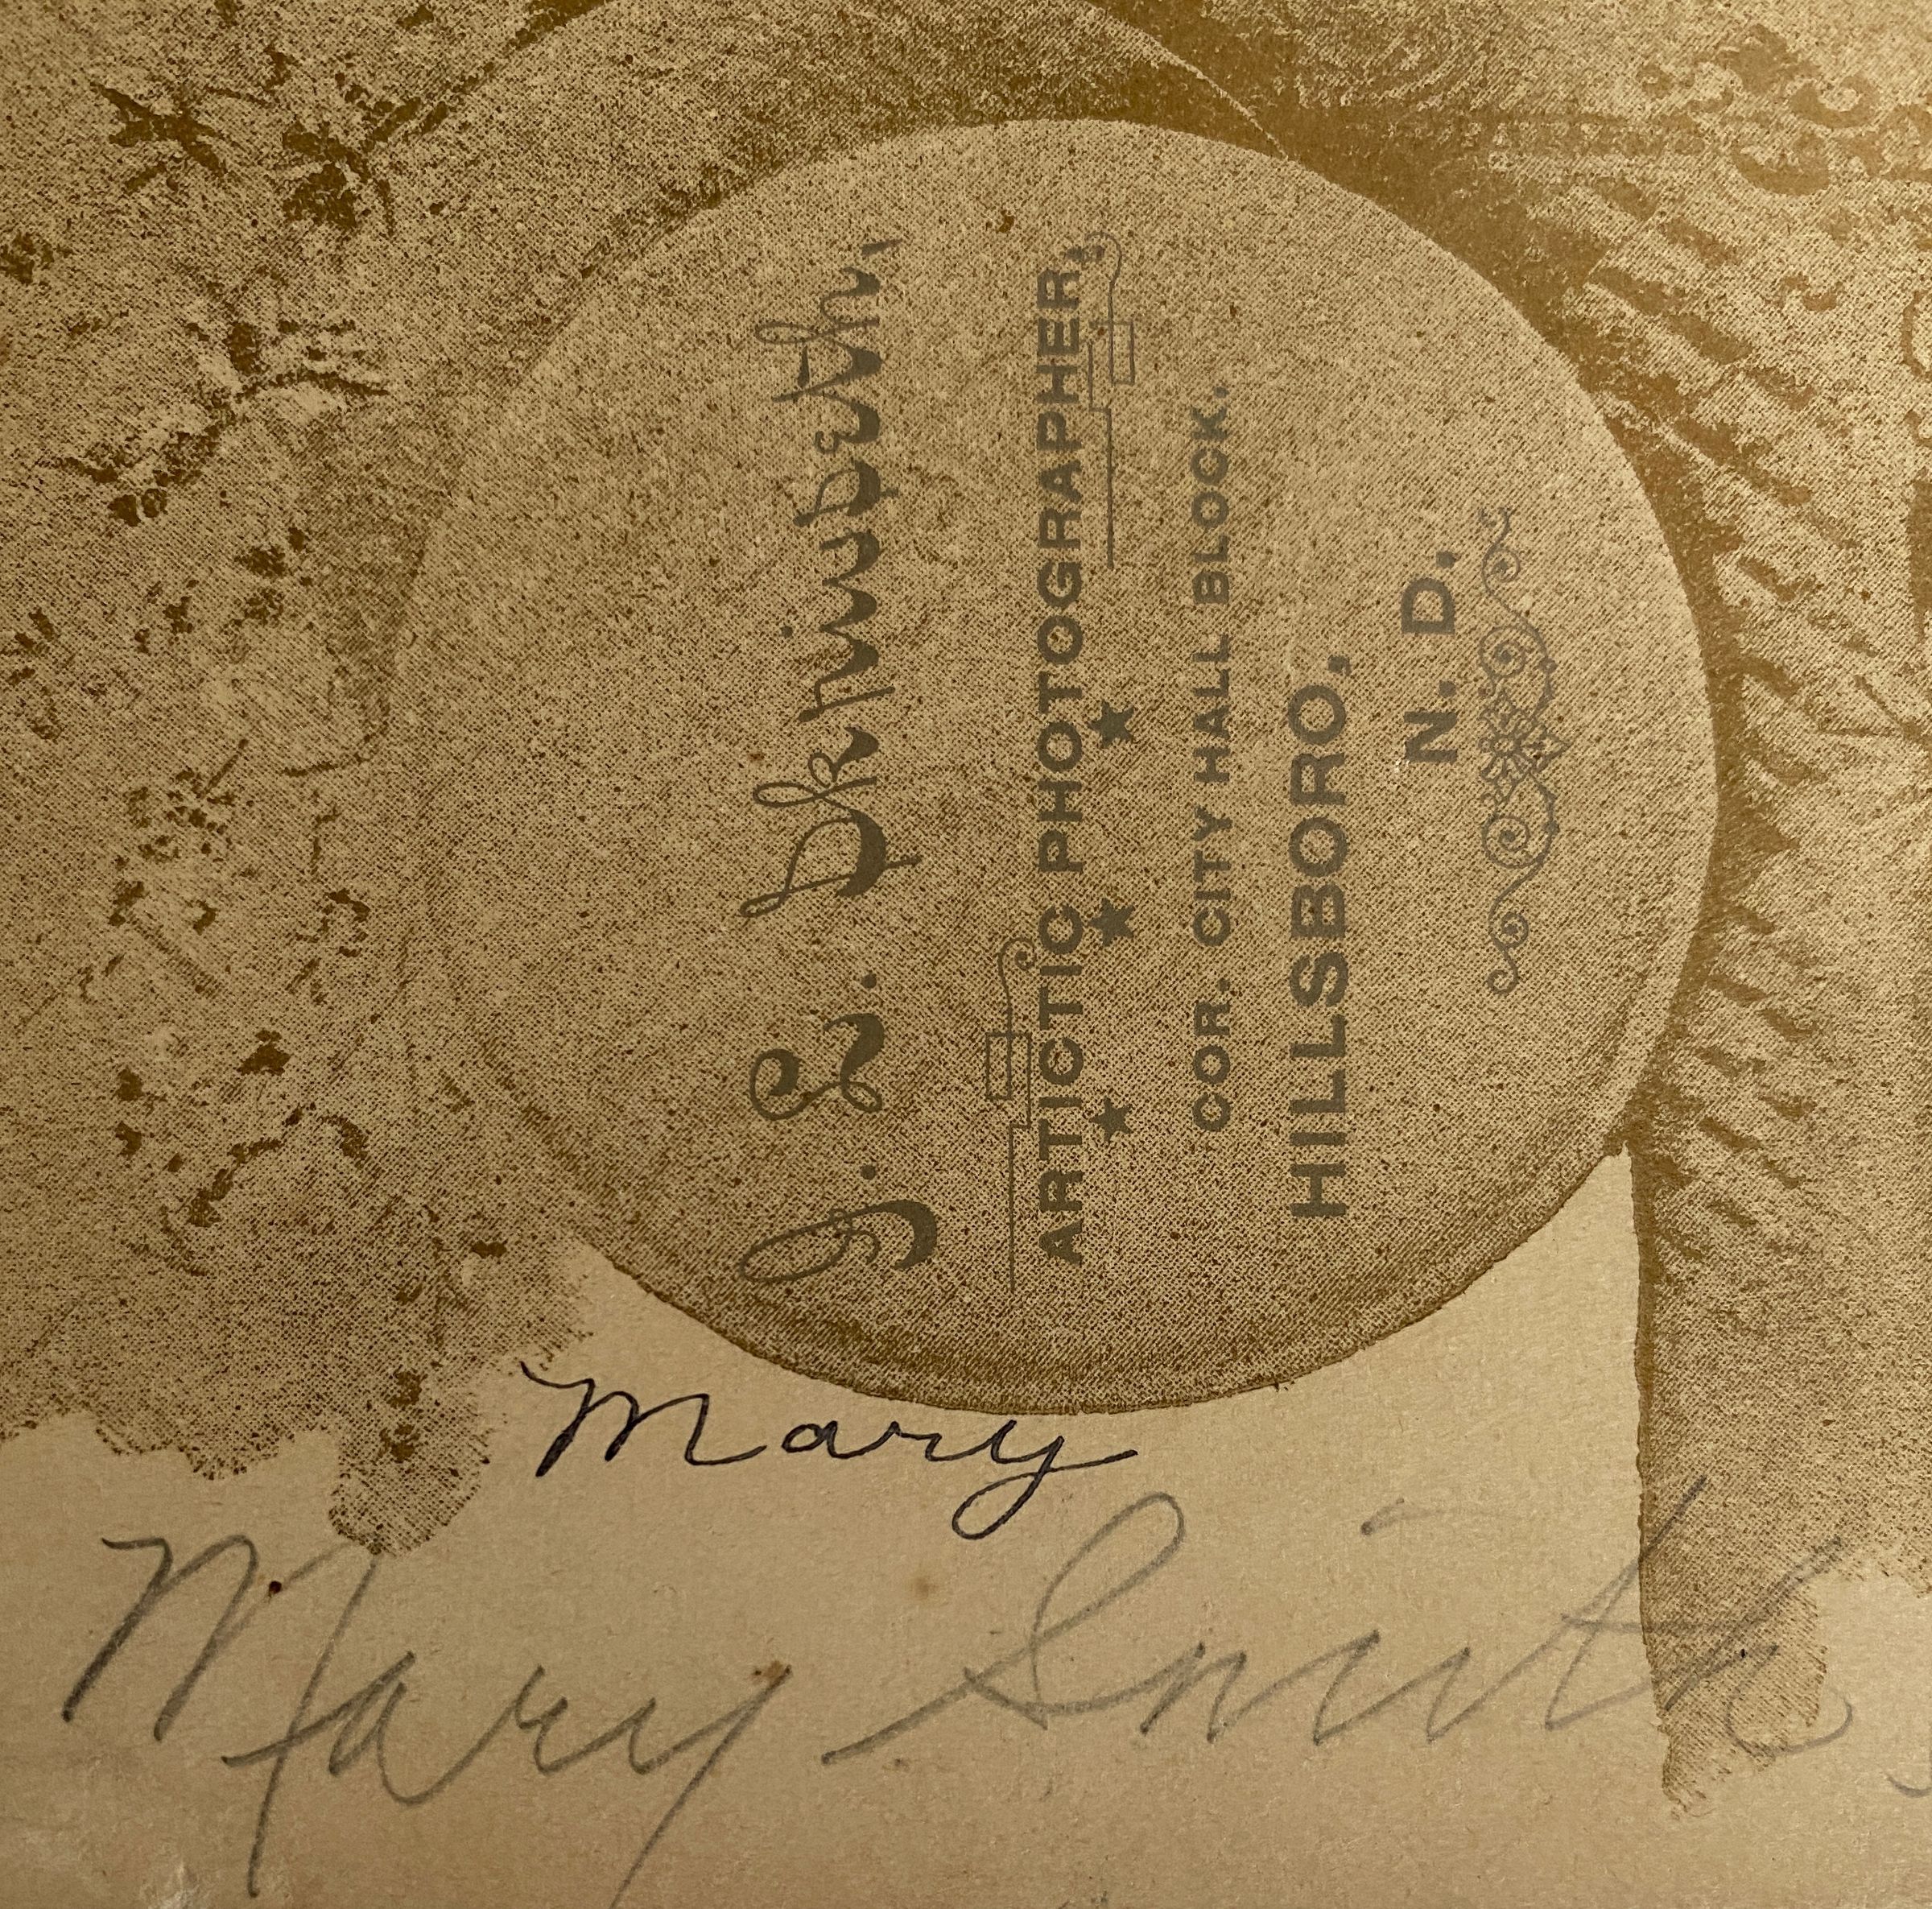 J. E. Skrivseth,
ARTICTIC PHOTOGRAPHER,
COR. CITY HALL BLOCK.
HILLSBORO,
N. D.
Mary
Mary Smith